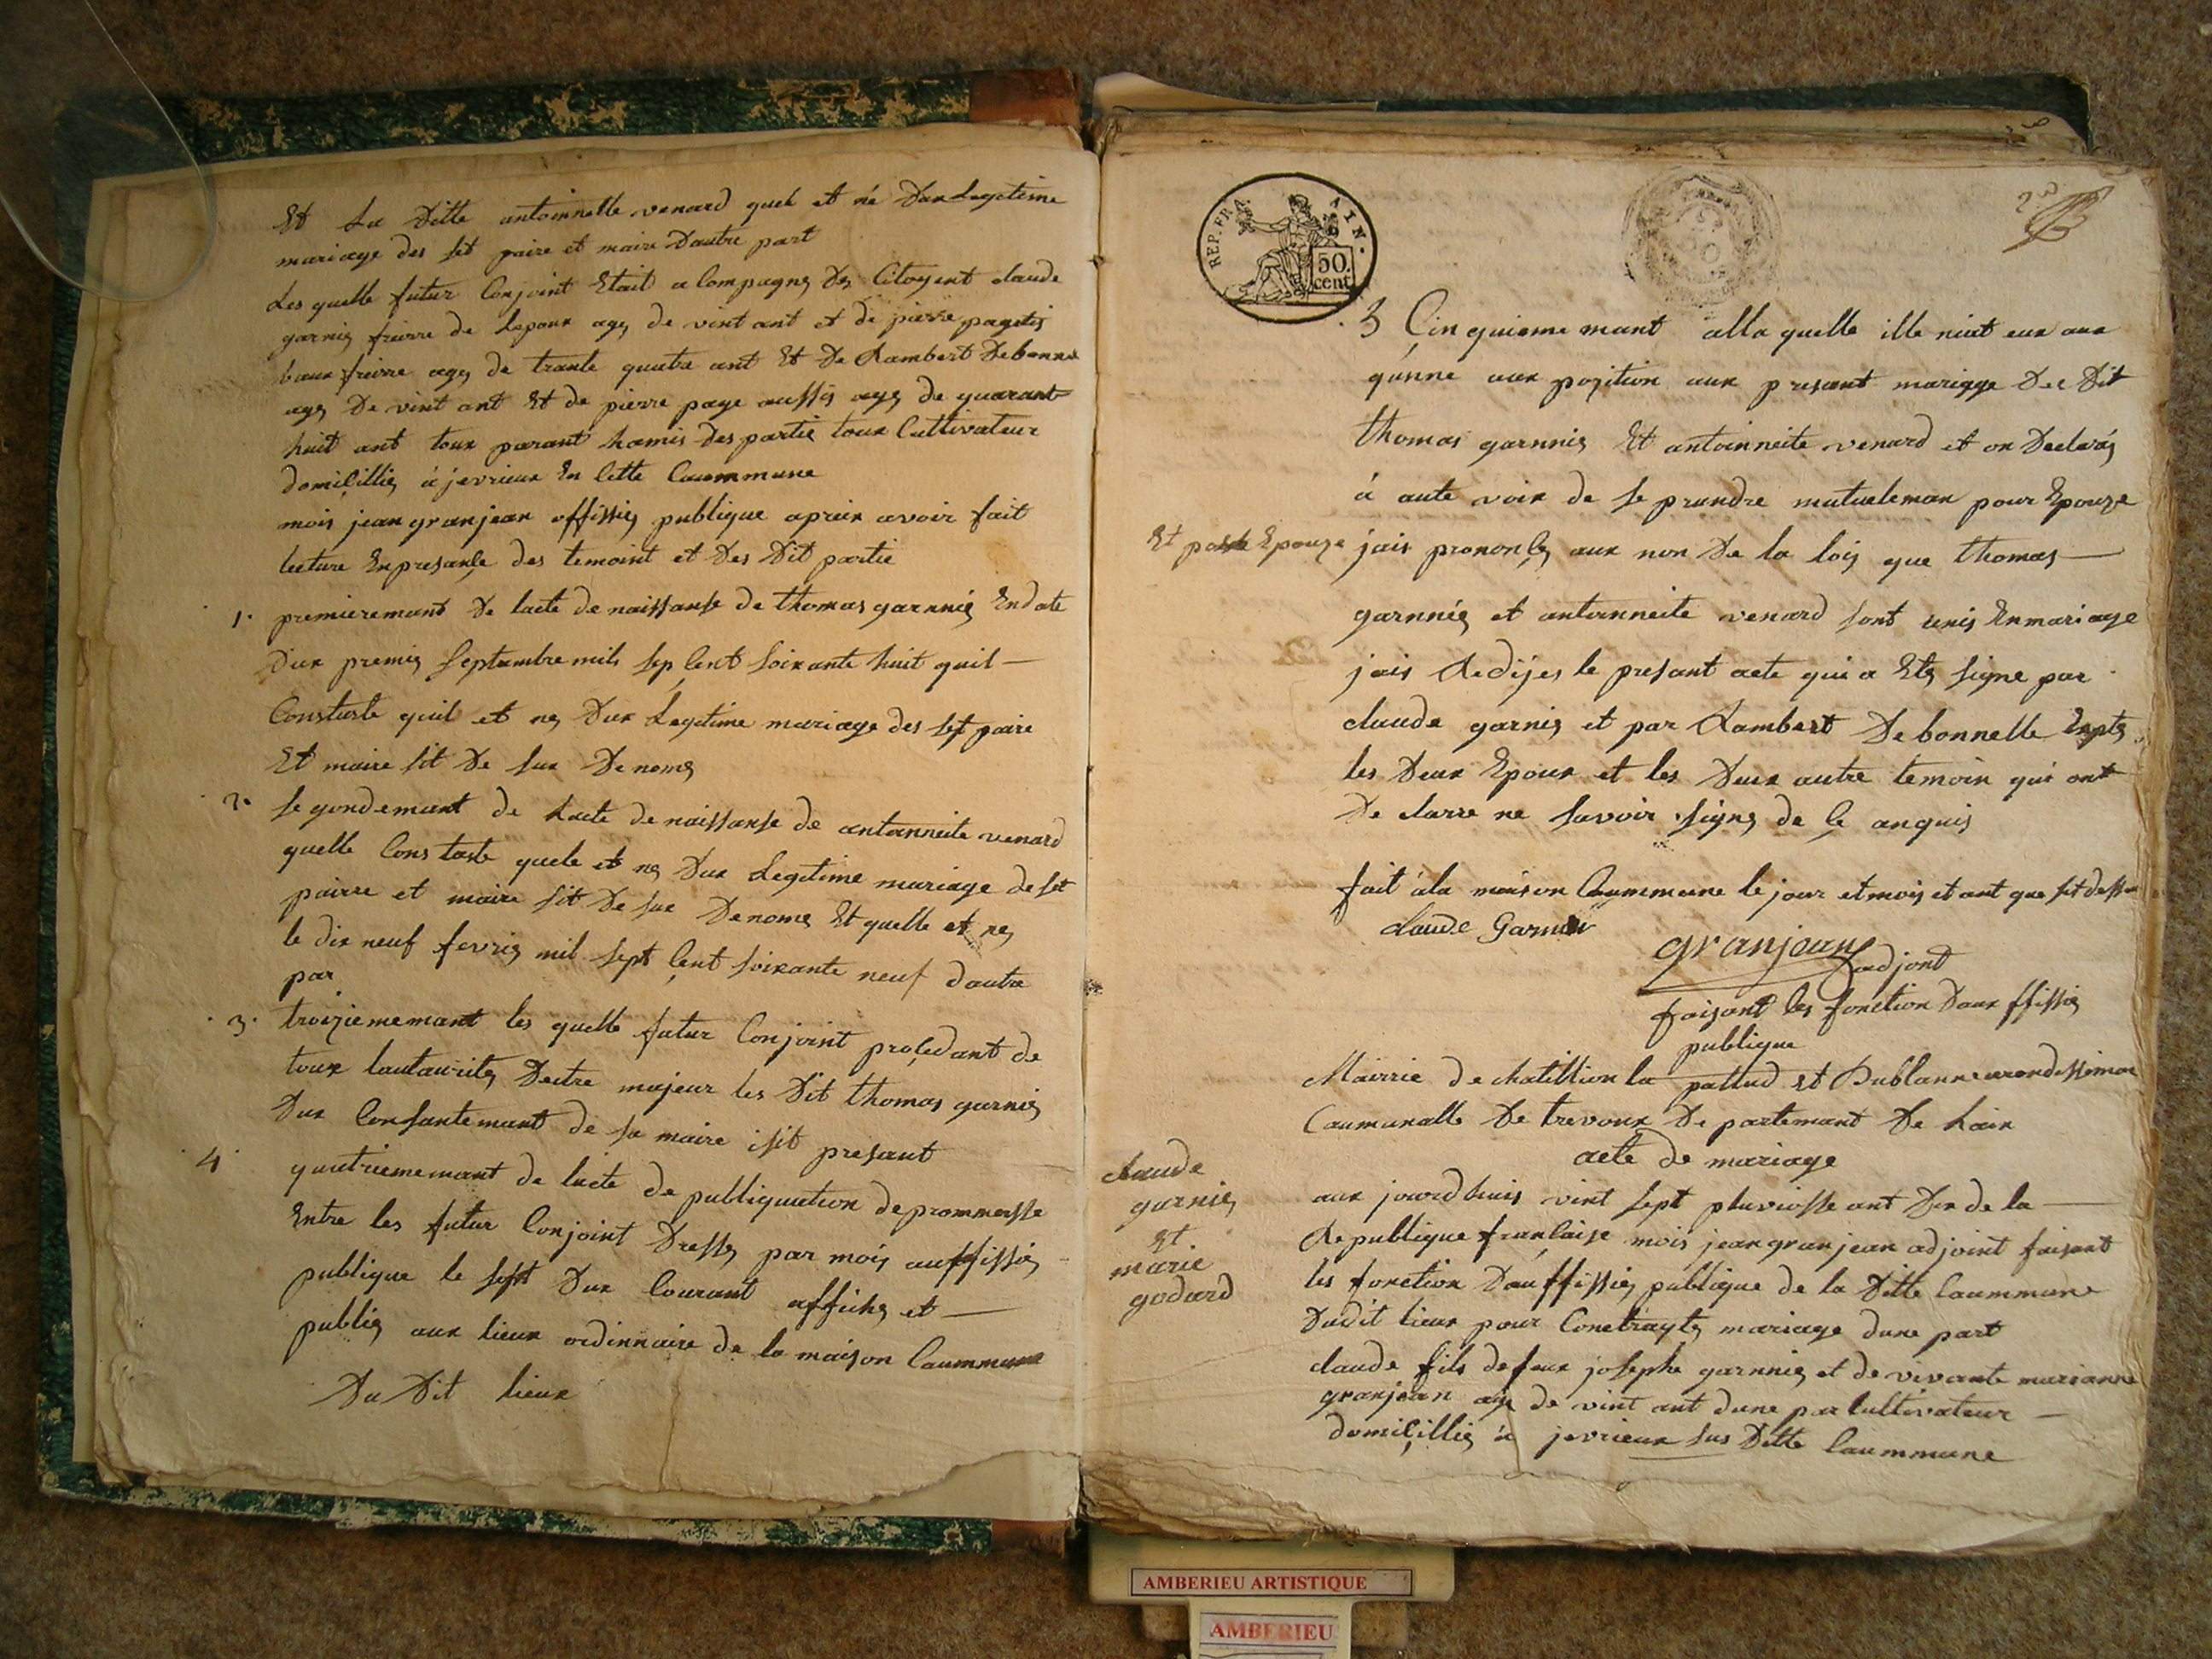 Et La Ditte antoinnette venard quel et né Dun Legitime
mariage des set paire et maire Dautre part
Les quelle futur Conjoint Etait a Compagnez De Citoyent claude
garniez freirre de Lepoux agez de vint ant et de pierre pagetis
baux freirre agez de trante quatre ant Et De Lambert Debonnel
agez De vint ant Et de pierre page aussis agez de quarant
huit ant toux parant hamis des partie toux Cultivateur
domiçilliez à jevrieux En Cette Caummune
mois jean granjean offissiez publique apreix avoir fait
lecture En presançe des temoint et Des Dit partie
1. premieremant De lacte de naissanse de thomas garnniéz En date
Dux premiez Septambre mils sep Cent Soixante huit quil —
Constaste quil et nez Dux Legitime mariage des set paire
Et maire sit De sux De nomez
2. segondemant de Lacte de naissanse de antonneite venard
quelle Constaste quele et nez Dux Legitime mariage de set
pairre et maire sit De sux De nomez Et quelle et nez
le dix neuf fevriez mil sept Çent soixante neuf dautre
par
3. troiziememant les quelle futur Conjoint proçedant de
toux lautauritez Dectre majeur les Dit thomas garniez
Dux Consantemant de sa maire isit presant
4. quatriememant de lacte de publiquation de prommesse
Entre les futur Conjoint Dressez par mois auffissiez
publique le sept Dux Courant affichez et —
publiez aux lieux ordinnaire de la maison Caummune
Du Dit lieux
REP. FRA. AIN.
50. cent
2
3 Çinquiememant alla quelle ille niat eux aux
qunne aux pozition aux presant mariage Dec Dit
thomas garnniez Et antoinneite venard et on Declaréz
à aute voix de se prandre mutueleman pour Epouze
Et poste Epouze jais prononçez aux non De la lois que thomas —
garnniéz et antonneite venard sont unis En mariage
jais Redijes le presant acte qui a Etez signe par
claude garniez et par Lambert Debonnelle Exptez
les Deux Epoux et les Deux autre temoin qui ont
De clarre ne savoir signez de çe anquis
fait à la maison Caummune le jour et mois et ant que sit dessu
claude Garnier
granjean adjont
faisant les fonction Daux ffissiez
publique
Mairrie de chatillion la pallud et Dublanne arondissimon
Caumunalle De trevoux De partemant De Lain
acte de mariage
claude
garniez
Et
marie
godard
aux jourdhuis vint sept pluviosse ant Dix de la —
Republique françaize mois jean granjean adjoint faisant
les fonction Dauffissiez publique de la Ditte Caummune
Dudit lieux pour Conctraytez mariage dune part
claude fils de feux josephe garnniez et de vivante marianne
granjean age de vint ant dune par Cultivateur —
domiçilliez à jevrieux sus Ditte Caummune
AMBERIEU ARTISTIQUE
AMBERIEU